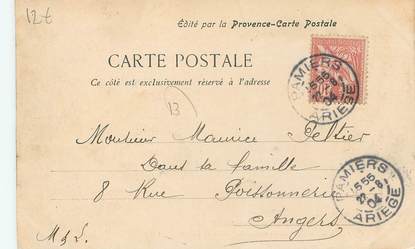 12t
Édité par la Provence-Carte Postale
CARTE POSTALE
Ce côté est exclusivement réservé à l'adresse
PAMIERS
ARIEGE
13
Monsieur Maurice Peltier
Dans sa famille
8 Rue Poissonnerie
Angers
PAMIERS
04
ARIEGE